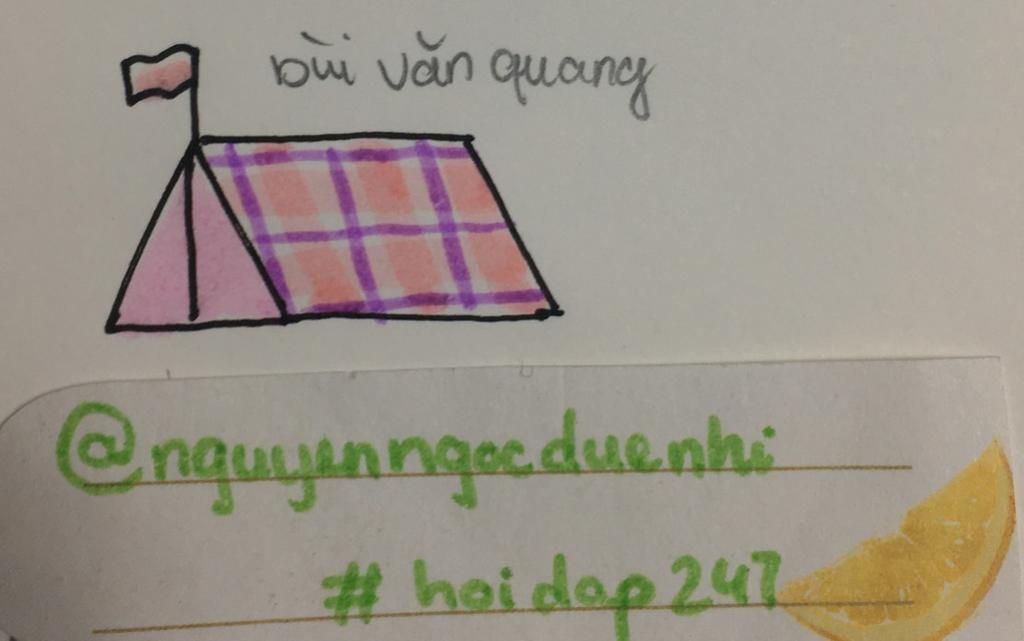 bùi văn quang
@nguyenngocduenhi
# hoidap247